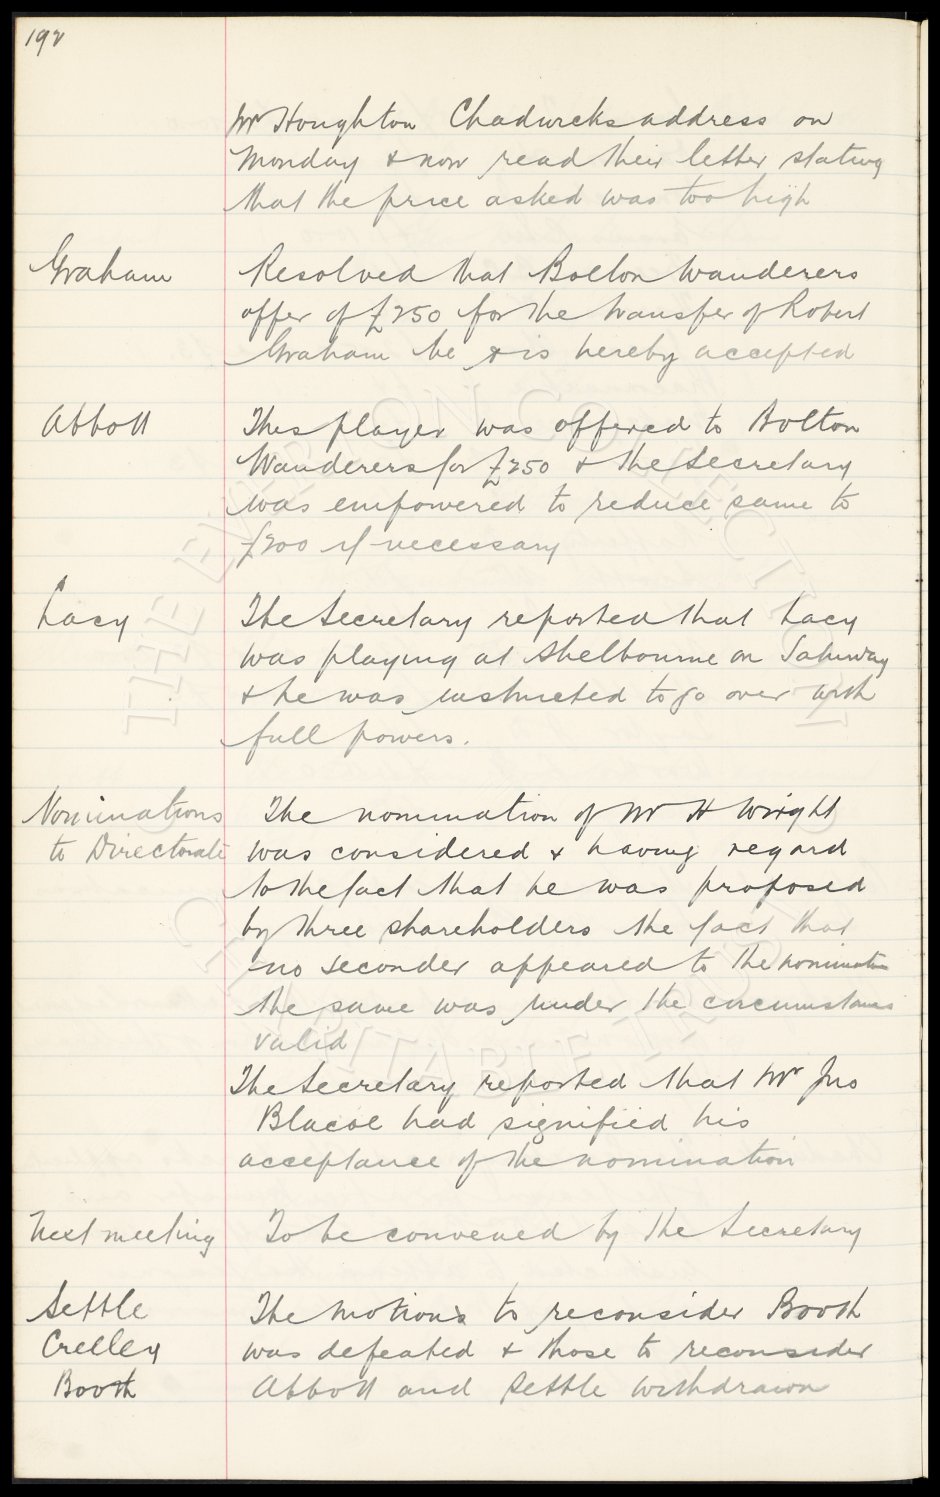 192
Mr Houghton Chadwicks address on
Monday & now read their letter stating
that the price asked was too high
Graham
Resolved that Bolton Wanderers
offer of £250 for the transfer of Robert
Graham be & is hereby accepted
Abbott
This player was offered to Bolton
Wanderers for £250 & the Secretary
was empowered to reduce same to
£200 if necessary
Lacy
The Secretary reported that Lacy
was playing at Shelbourne on Saturday
& he was instructed to go over with
full powers.
Nominations
to Directorate
The nomination of Mr H Wright
was considered & having regard
to the fact that he was proposed
by three shareholders the fact that
no seconder appeared to the nomination
the same was under the circumstances
valid
The Secretary reported that Mr Jno
Blacoe had signified his
acceptance of the nomination
Next meeting
To be convened by the Secretary
Settle
Crelley
Booth
The motions to reconsider Booth
was defeated & those to reconsider
Abbott and Settle withdrawn
THE EVERTON COLLECTION
CHARITABLE TRUST